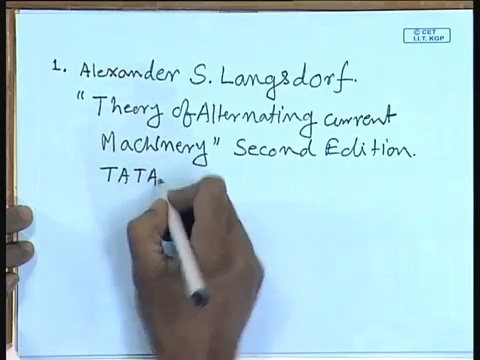 © CET
I.I.T. KGP
1. Alexander S. Langsdorf.
"Theory of Alternating current
Machinery" Second Edition.
TATA